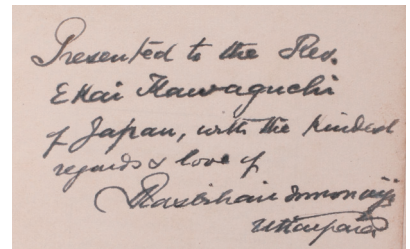 Presented to the Rev.
Ekai Kawaguchi
of Japan, with the kindest
regards & love of
Uttarpara